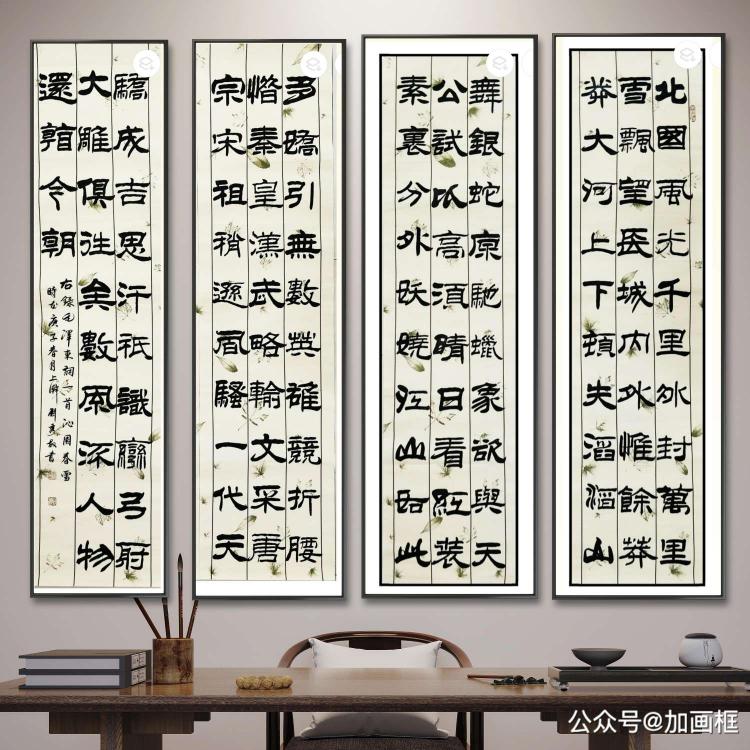 北國風光千里冰封萬里
雪飄望長城內外惟餘莽
莽大河上下頓失滔滔山
舞銀蛇原馳蠟象欲與天
公試比高須晴日看紅裝
素裹分外妖嬈江山如此
多嬌引無數英雄競折腰
惜秦皇漢武略輸文采唐
宗宋祖稍遜風騷一代天
驕成吉思汗祇識彎弓射
大雕俱往矣數風流人物
還看今朝
右錄毛澤東詞一首沁園春雪
時在庚子春月上澣劉書
公众号@加画框